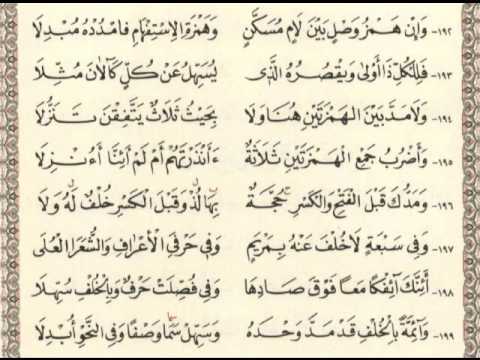 ١٩٢- وَإِنْ هَمْزُ وَصْلٍ بَيْنَ لَامٍ مُسَكَّنٍ وَهَمْزَةِ الِاسْتِفْهَامِ فَامْدُدْهُ مُبْدِلَا
١٩٣- فَلِلْكُلِّ ذَا أَوْلَى وَيَقْصُرُهُ الَّذِي يُسَهِّلُ عَنْ كُلٍّ كَآلَانَ مُثِّلَا
١٩٤- وَلَا مَدَّ بَيْنَ الْهَمْزَتَيْنِ هُنَا وَلَا بِحَيْثُ ثَلَاثٌ يَتَّفِقْنَ تَنَزُّلَا
١٩٥- وَأَضْرُبُ جَمْعِ الْهَمْزَتَيْنِ ثَلَاثَةٌ ءَأَنْذَرْتَهُمْ أَمْ لَمْ أَئِنَّا أَءُنْزِلَا
١٩٦- وَمَدُّكَ قَبْلَ الْفَتْحِ وَالْكَسْرِ حُجَّةٌ بِهَا لُذْ وَقَبْلَ الْكَسْرِ خُلْفٌ لَهُ وَلَا
١٩٧- وَفِي سَبْعَةٍ لَا خُلْفَ عَنْهُ بِمَرْيَمٍ وَفِي حَرْفَيِ الْأَعْرَافِ وَالشُّعَرَا الْعُلَى
١٩٨- أَئِنَّكَ آئِفْكًا مَعًا فَوْقَ صَادِهَا وَفِي فُصِّلَتْ حَرْفٌ وَبِالْخُلْفِ سُهِّلَا
١٩٩- وَآئِمَّةً بِالْخُلْفِ قَدْ مَدَّ وَحْدَهُ وَسَهِّلْ سَمَا وَصْفًا وَفِي النَّحْوِ أُبْدِلَا